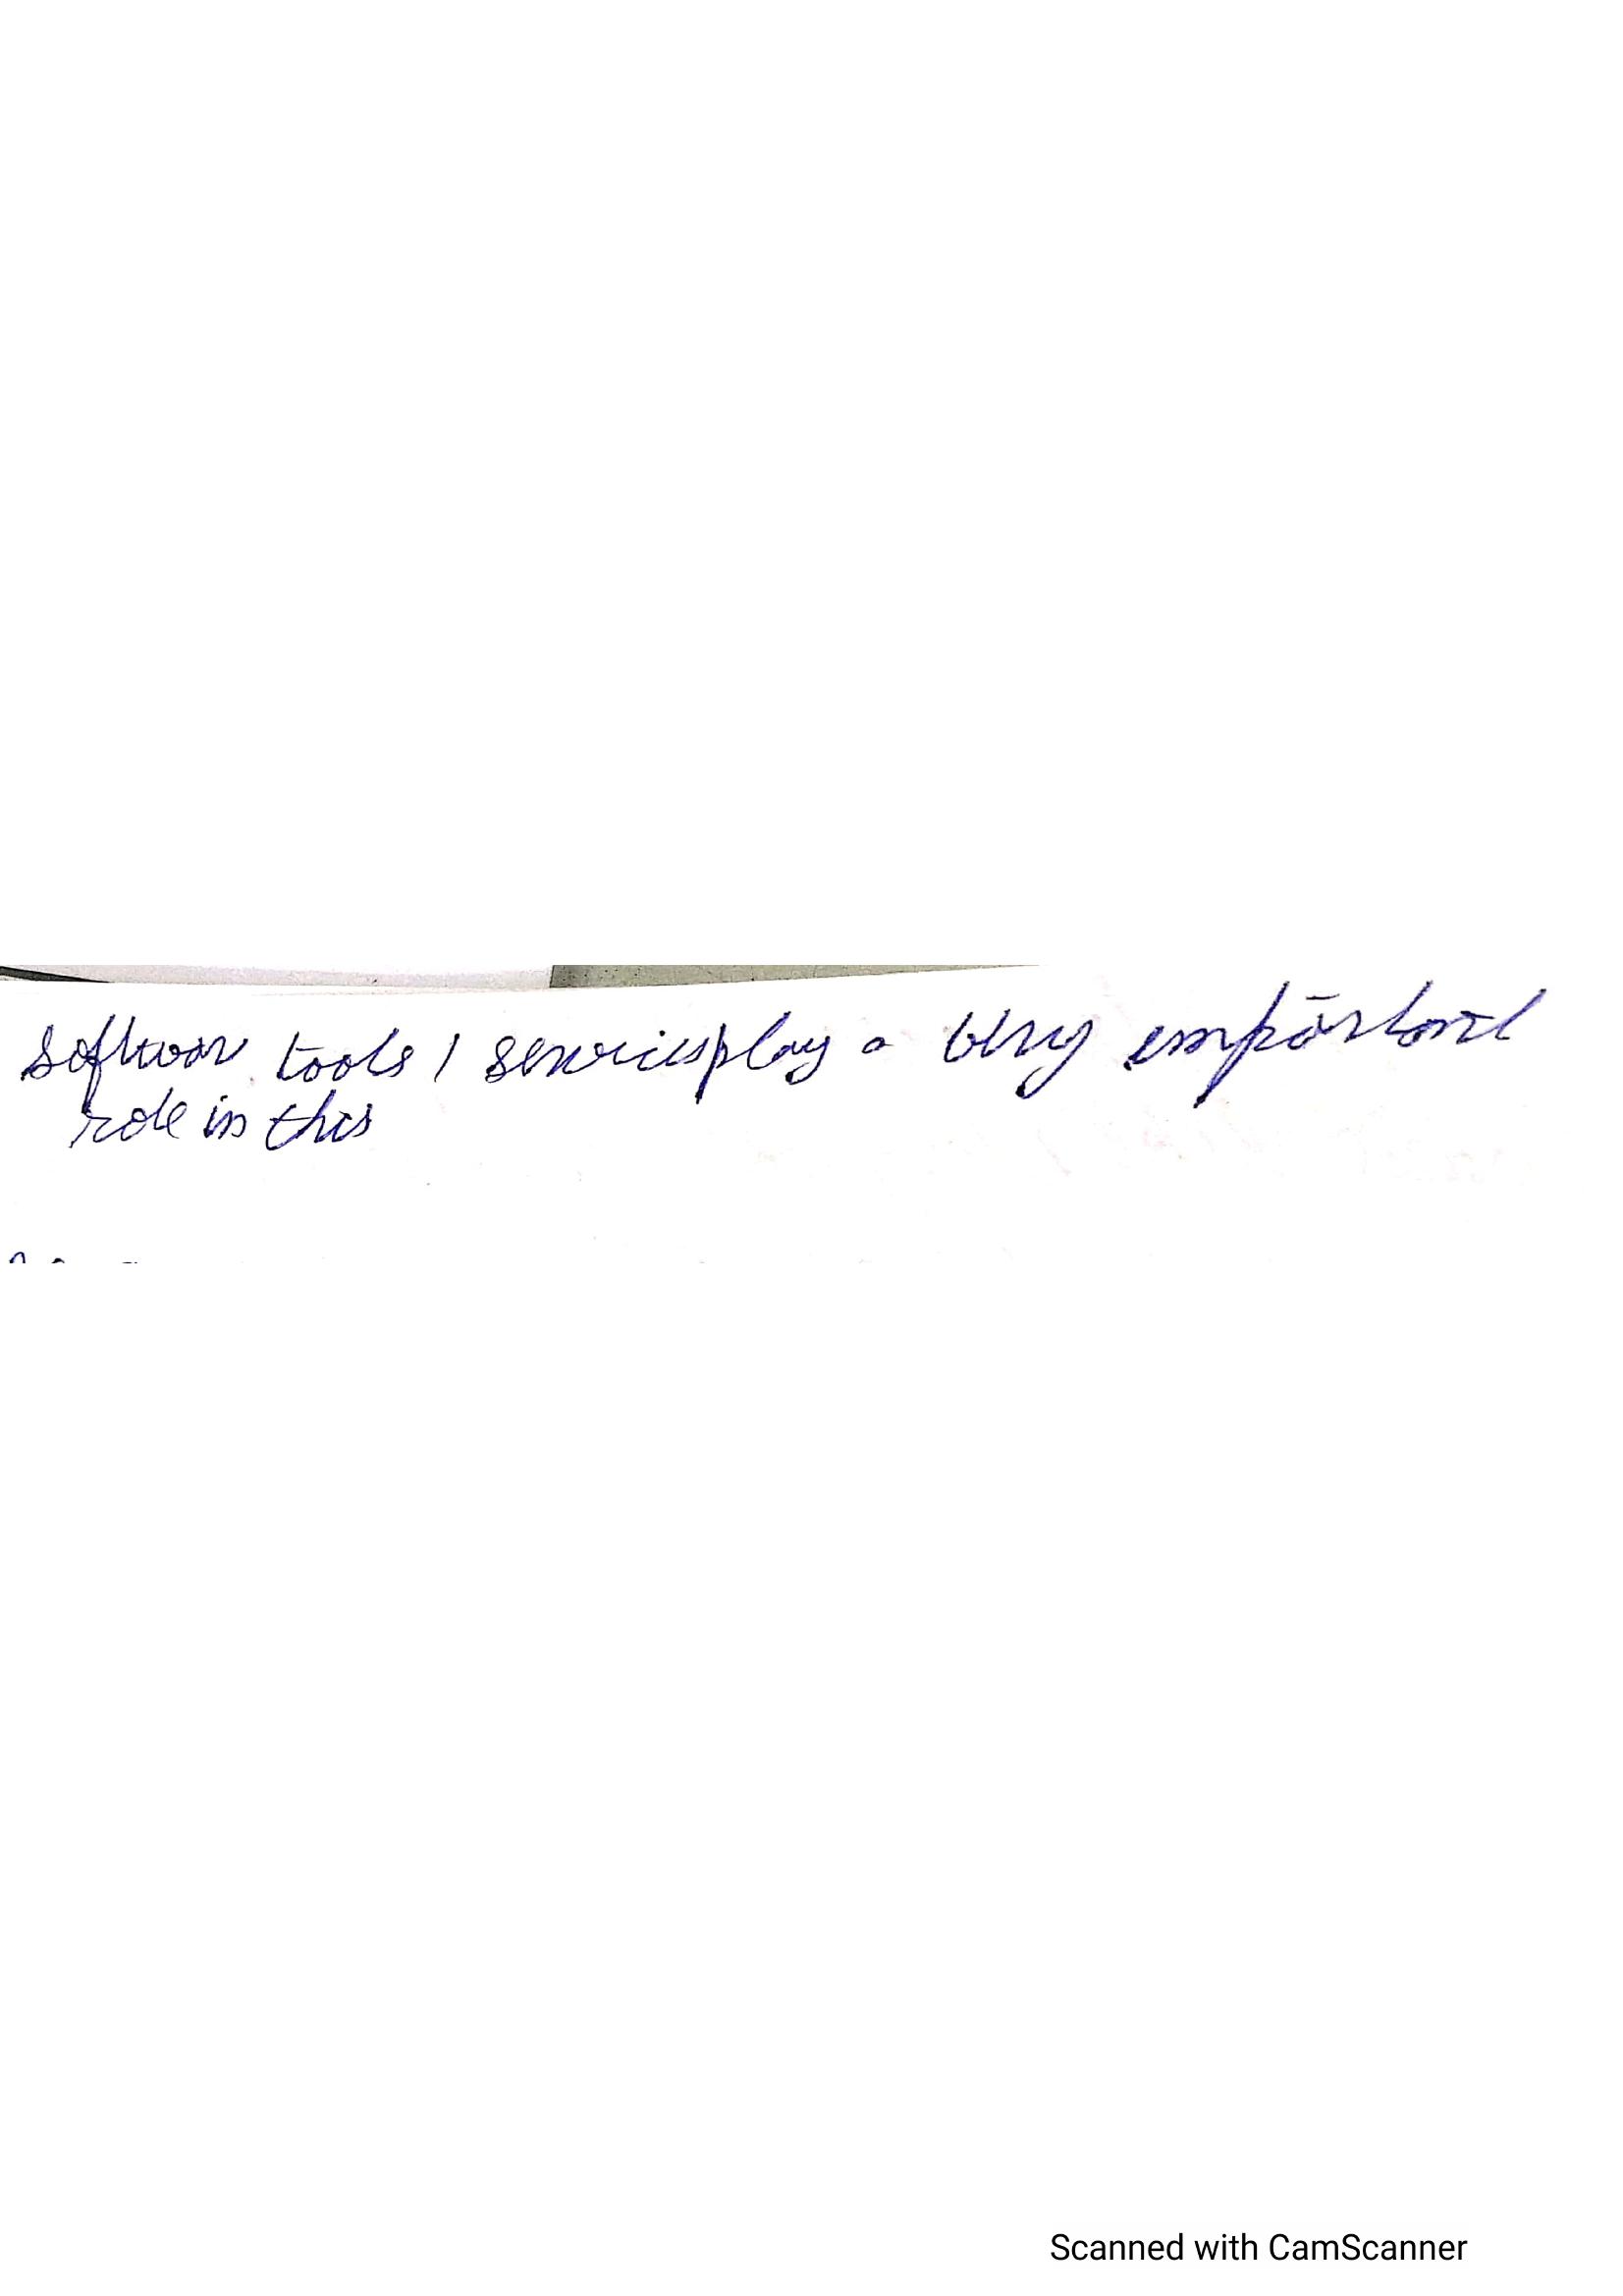 software tools / services play a very important
role in this
Scanned with CamScanner